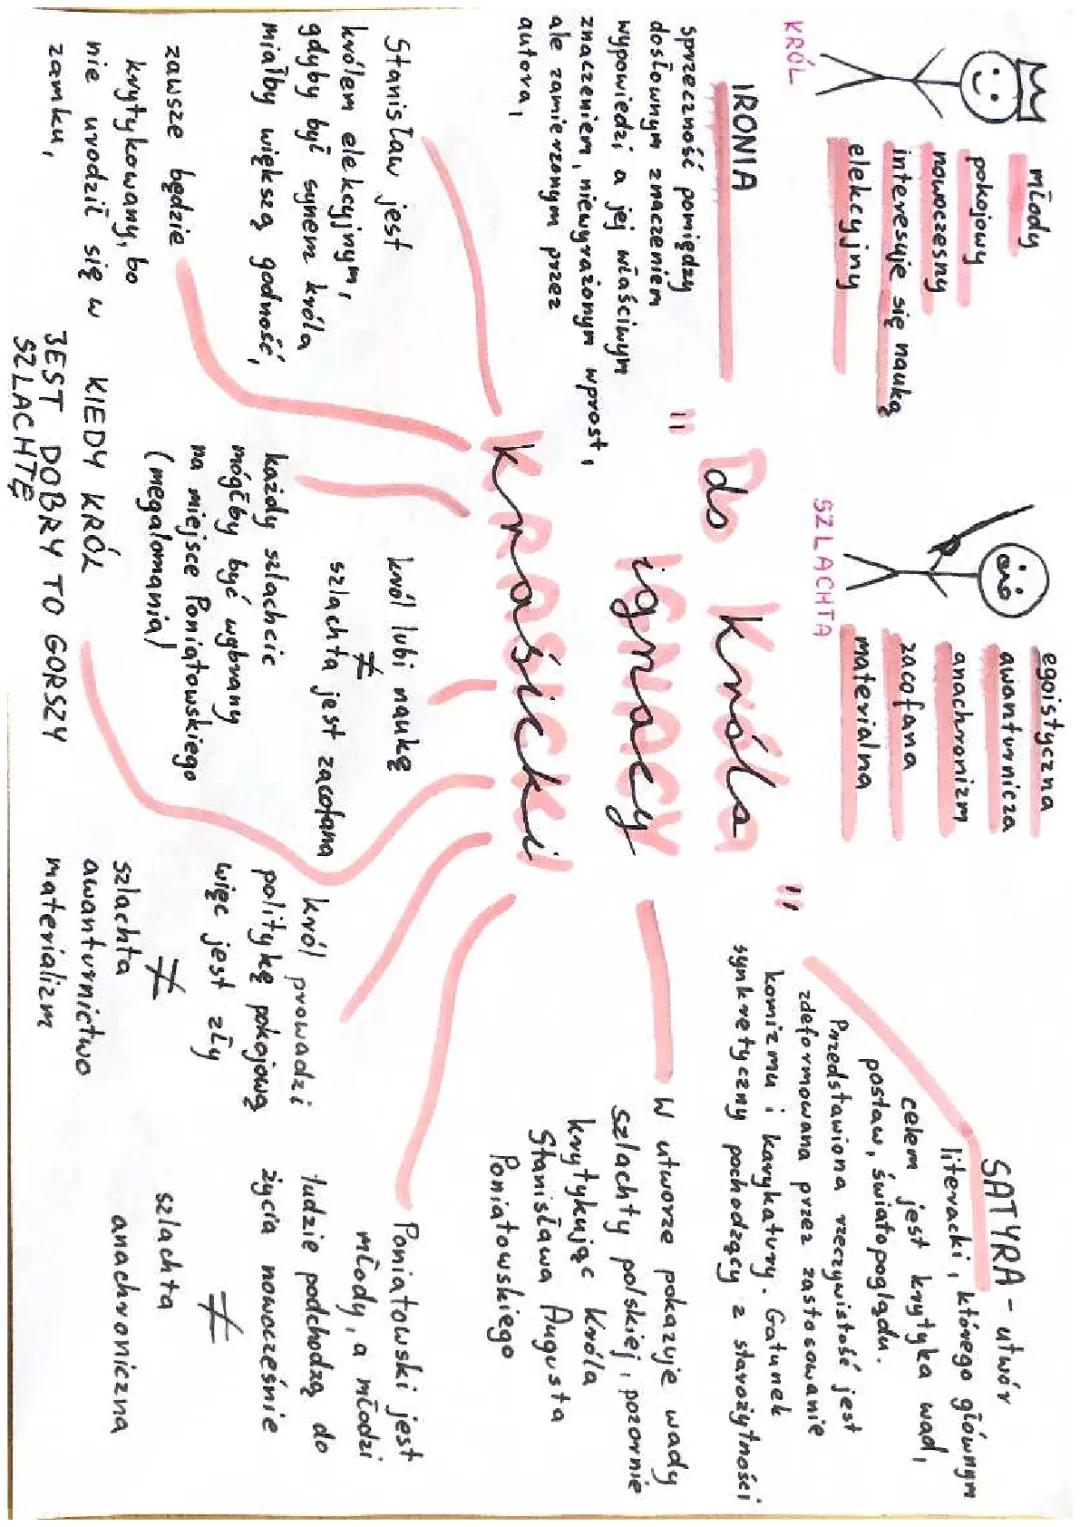 KRÓL
młody
pokojowy
nowoczesny
interesuje się nauką
elekcyjny
SZLACHTA
egoistyczna
awanturnicza
anachronizm
zacofana
materialna
"Do Króla"
ignacy
Krasicki
IRONIA
sprzeczność pomiędzy
dosłownym znaczeniem
wypowiedzi a jej właściwym
znaczeniem, niewyrażonym wprost,
ale zamierzonym przez
autora,
SATYRA - utwór
literacki, którego głównym
celem jest krytyka wad,
postaw, światopoglądu.
Przedstawiona rzeczywistość jest
zdeformowana przez zastosowanie
komizmu i karykatury. Gatunek
synkretyczny pochodzący z starożytności
W utworze pokazuje wady
szlachty polskiej, pozornie
krytykując króla
Stanisława Augusta
Poniatowskiego
Stanisław jest
królem elekcyjnym,
gdyby był synem króla
miałby większą godność,
zawsze będzie
krytykowany, bo
nie urodził się w
zamku,
każdy szlachcic
mógłby być wybrany
na miejsce Poniatowskiego
(megalomania)
król lubi naukę
≠
szlachta jest zacofana
KIEDY KRÓL
JEST DOBRY TO GORSZY
SZLACHTĘ
król prowadzi
politykę pokojową
więc jest zły
≠
szlachta
awanturnictwo
materializm
Poniatowski jest
młody, a młodzi
ludzie podchodzą do
życia nowocześnie
≠
szlachta
anachroniczna